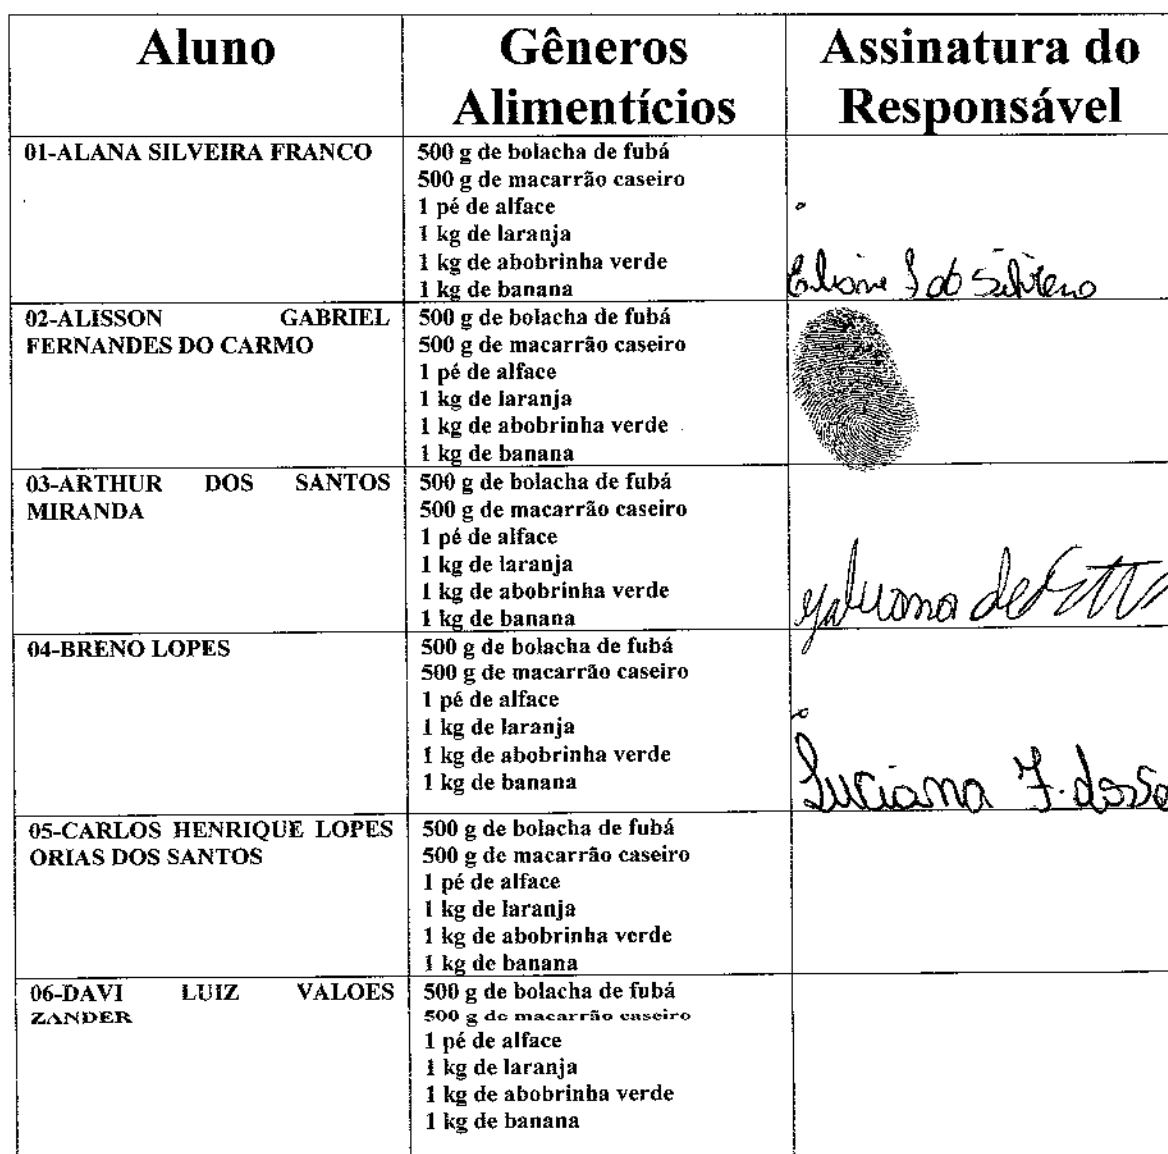 Aluno
Gêneros
Alimentícios
Assinatura do
Responsável
01-ALANA SILVEIRA FRANCO
500 g de bolacha de fubá
500 g de macarrão caseiro
1 pé de alface
1 kg de laranja
1 kg de abobrinha verde
1 kg de banana
02-ALISSON GABRIEL
FERNANDES DO CARMO
500 g de bolacha de fubá
500 g de macarrão caseiro
1 pé de alface
1 kg de laranja
1 kg de abobrinha verde
1 kg de banana
03-ARTHUR DOS SANTOS
MIRANDA
500 g de bolacha de fubá
500 g de macarrão caseiro
1 pé de alface
1 kg de laranja
1 kg de abobrinha verde
1 kg de banana
04-BRENO LOPES
500 g de bolacha de fubá
500 g de macarrão caseiro
1 pé de alface
1 kg de laranja
1 kg de abobrinha verde
1 kg de banana
Luciana F. dos
05-CARLOS HENRIQUE LOPES
ORIAS DOS SANTOS
500 g de bolacha de fubá
500 g de macarrão caseiro
1 pé de alface
1 kg de laranja
1 kg de abobrinha verde
1 kg de banana
06-DAVI LUIZ VALOES
ZANDER
500 g de bolacha de fubá
500 g de macarrão caseiro
1 pé de alface
1 kg de laranja
1 kg de abobrinha verde
1 kg de banana